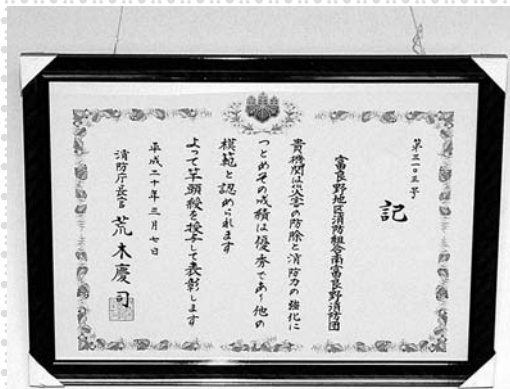 第三一〇三号
記
富良野地区消防組合南富良野消防団
貴機関は災害の防除と消防力の強化に
つとめその成績は優秀であり他の
模範と認められます
よって竿頭綬を授与して表彰します
平成二十年三月七日
消防庁長官 荒木慶司